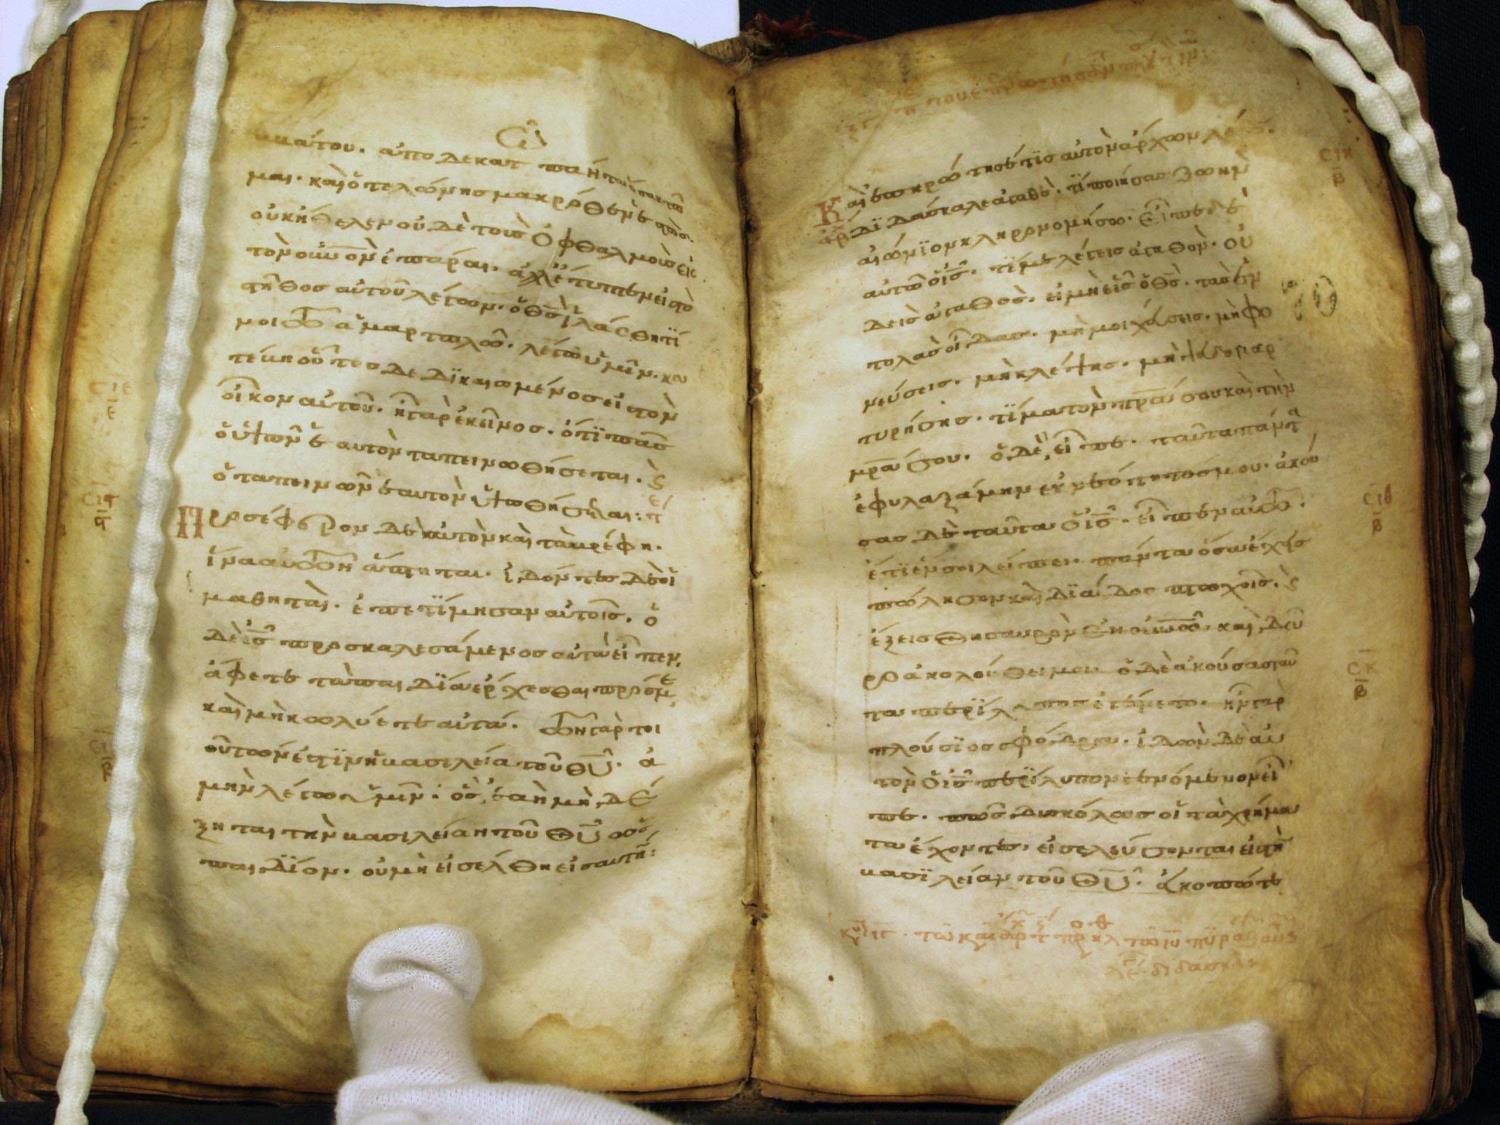 βάτου. ἀποδεκατῶ πάντα ὅσα κτῶ
μαι. καὶ ὁ τελώνης μακρόθεν ἑστὼς.
οὐκ ἤθελεν οὐδὲ τοὺς ὀφθαλμοὺς εἰς
τὸν οὐνὸν ἐπᾶραι. ἀλλ' ἔτυπτεν εἰς τὸ
στῆθος αὐτοῦ λέγων. ὁ θς ἱλάσθητί
μοι τῶ ἁμαρτωλῶ. λέγω ὑμῖν. κα
τέβη οὗτος δεδικαιωμένος εἰς τὸν
οἶκον αὐτοῦ. ἢ γὰρ ἐκεῖνος. ὅτι πᾶς
ὁ ὑψῶν ἑαυτὸν ταπεινωθήσεται.
ὁ ταπεινῶν ἑαυτὸν ὑψωθήσεται:
Προσέφερον δὲ αὐτῶ καὶ τὰ βρέφη.
ἵνα αὐτῶν ἅπτηται. ἰδόντες δὲ οἱ
μαθηταὶ. ἐπετίμησαν αὐτοῖς. ὁ
δὲ ις προσκαλεσάμενος αὐτὰ εἶπεν.
ἄφετε τὰ παιδία ἔρχεσθαι πρός με
καὶ μὴ κωλύετε αὐτά. τῶν γὰρ τοι
ούτων ἐστὶν ἡ βασιλεία τοῦ θυ. ἀ
μὴν λέγω ὑμῖν. ὃς ἐὰν μὴ δέ
ξηται τὴν βασιλείαν τοῦ θυ ὡς
παιδίον. οὐ μὴ εἰσέλθη εἰς αὐτήν:
Καὶ ἐπηρώτησέ τις αὐτὸν ἄρχων λέγων.
διδάσκαλε ἀγαθὲ. τί ποιήσας ζωὴν
αἰώνιον κληρονομήσω. εἶπε δὲ
αὐτῶ ὁ ις. τί με λέγεις ἀγαθόν. οὐ
δεὶς ἀγαθὸς. εἰ μὴ εἷς ὁ θς. τὰς ἐν
τολὰς οἶδας. μὴ μοιχεύσεις. μὴ φο
νεύσεις. μὴ κλέψης. μὴ ψευδομαρ
τυρήσης. τίμα τὸν πρα σου καὶ τὴν
μρα σου. ὁ δὲ εἶπε. ταῦτα πάντα
ἐφυλαξάμην ἐκ νεότητός μου. ἀκού
σας δὲ ταῦτα ὁ ις. εἶπεν αὐτῶ.
ἔτι ἕν σοι λείπει. πάντα ὅσα ἔχεις
πώλησον καὶ διάδος πτωχοῖς.
ἕξεις θησαυρὸν ἐν οὐνῶ. καὶ δεῦ
ρο ἀκολούθει μοι. ὁ δὲ ἀκούσας ταῦ
τα περίλυπος ἐγένετο. ἦν γὰρ
πλούσιος σφόδρα. ἰδὼν δὲ αὐ
τὸν ὁ ις περίλυπον γενόμενον εἶ
πε. πῶς δισκόλως οἱ τὰ χρήμα
τα ἔχοντες. εἰσελεύσονται εἰς τὴν
βασιλείαν τοῦ θυ. ἀκοπώτε